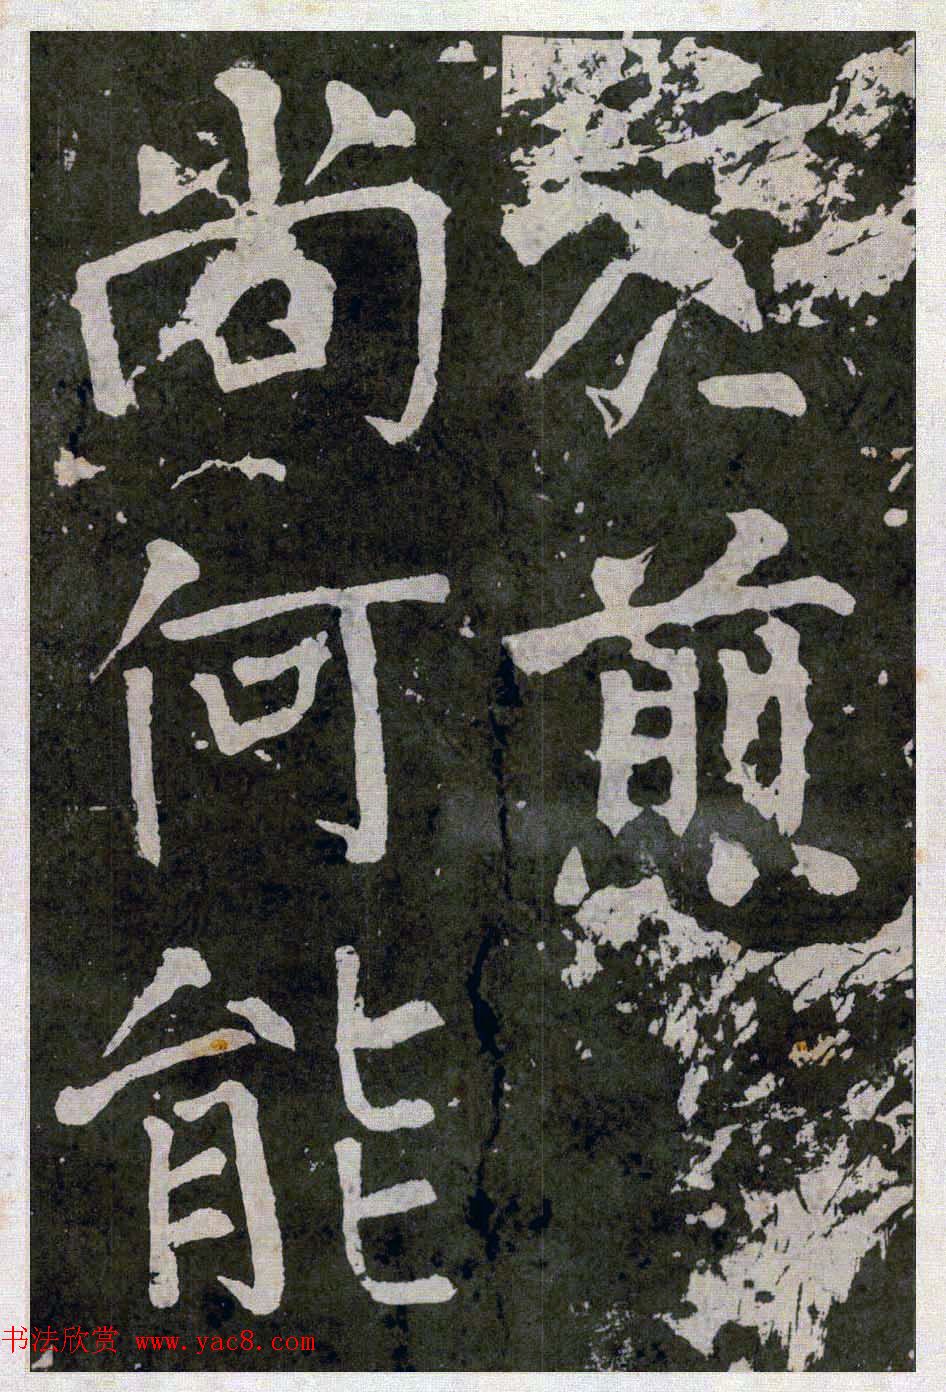 煎
尚何能
书法欣赏 www.yac8.com